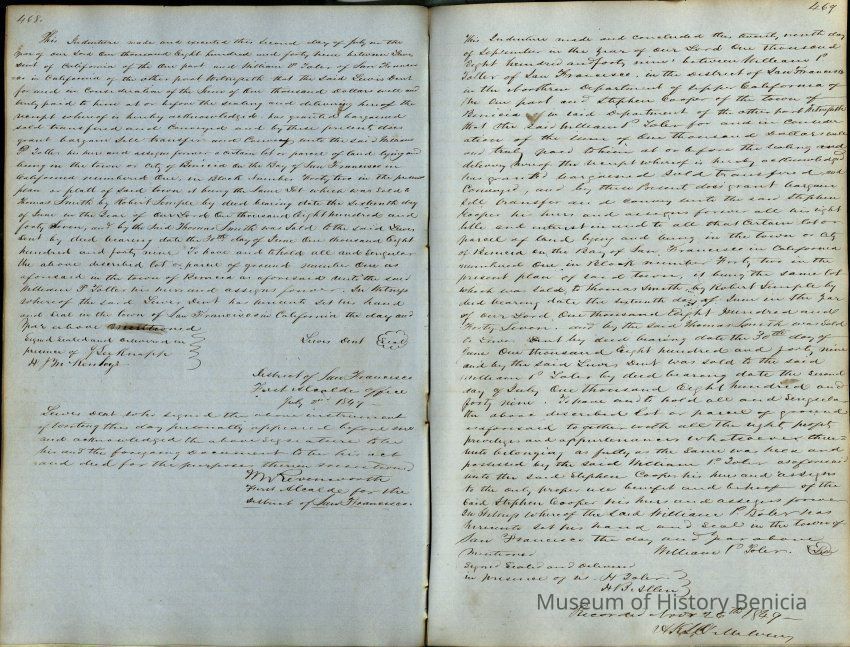 468.
This Indenture made and executed this second day of July in the
year of our Lord One thousand Eight hundred and forty nine between Lewis
Dent of California of the One part and William P. Toler of San Francis
co in California of the other part Witnesseth that the Said Lewis Dent
for and in Consideration of the Sum of One thousand dollars well and
truly paid to him at or before the sealing and delivery hereof the
receipt whereof is hereby acknowledged has granted bargained
sold transferred and Conveyed and by these presents does
grant bargain Sell transfer and Convey unto the said William
P. Toller his heirs and assigns forever a certain lot or parcel of land lying and
being in the town or City of Benicia on the Bay of San Francisco in
California numbered One, in Block number Forty two in the present
plan or platt of said town it being the Same Lot which was Sold to
Thomas Smith by Robert Semple by deed bearing date the Sixteenth day
of June in the Year of our Lord One thousand Eight hundred and
forty Seven, and by the Said Thomas Smith was Sold to the said Lewis
Dent by deed bearing date the 30th day of June One thousand Eight
hundred and forty nine To have and to hold all and Singular
the above described lot or parcel of ground number One as
aforesaid in the town of Benicia as aforesaid unto the said
William P. Toller his heirs and assigns forever. In Witness
whereof the said Lewis Dent has hereunto set his hand
and seal in the town of San Francisco in California the day and
Year above mentioned
Signed Sealed and delivered in
presence of J. Lee Knapp
Lewis Dent Seal
District of San Francisco
First Alcalde Office
July 2nd 1849
Lewis Dent who signed the above instrument
of writing this day personally appeared before me
and acknowledged the above signature to be
his and the foregoing document to be his act
and deed for the purposes therein mentioned
Levenworth
First Alcalde for the
District of San Francisco.
469
This Indenture made and concluded this twenty ninth day
of September in the Year of Our Lord One thousand
Eight hundred and forty nine between William P.
Toller of San Francisco in the District of San Francisco
in the Northern Department of Upper California of
the One part and Stephen Cooper of the town of
Benicia in said Department of the other part Witnesseth
that the said William P. Toler for and in Consider
ation of the Sum of One thousand Dollars well
and truly paid to him at or before the Sealing and
delivery hereof the receipt whereof is hereby acknowledged
has granted bargained Sold transferred and
Conveyed, and by these Presents does grant bargain
Sell transfer and convey unto the said Stephen
Cooper his heirs and assigns forever all his right
title and interest in and to all that Certain lot or
parcel of land lying and being in the town or City
of Benicia on the Bay of San Francisco in California
numbered One in Block number Forty two in the
present plan of said town, it being the same lot
which was sold to Thomas Smith by Robert Semple by
deed bearing date the sixteenth day of June in the Year
of our Lord One thousand Eight Hundred and
Forty Seven and by the said Thomas Smith was Sold
to Lewis Dent by deed bearing date the 30th day of
June One thousand Eight hundred and forty nine
and by the said Lewis Dent was sold to the said
William P. Toler by deed bearing date the Second
day of July One thousand Eight hundred and
forty nine. To have and to hold all and Singular
the above described lot or parcel of ground
as aforesaid together with all the right
privileges and appurtenances whatsoever there-
unto belonging as fully as the Same was held and
possessed by the said William P. Toler as aforesaid
unto the said Stephen Cooper his heirs and assigns
to the only proper use benefit and behoof of the
said Stephen Cooper his heirs and assigns forever
In Witness whereof the said William P. Toler has
hereunto set his hand and seal in the town of
San Francisco the day and year above
mentioned
William P. Toler. Seal
Signed Sealed and Delivered
in presence of H Toler
Allen
Recorded Nov 26th 1849
Museum of History Benicia